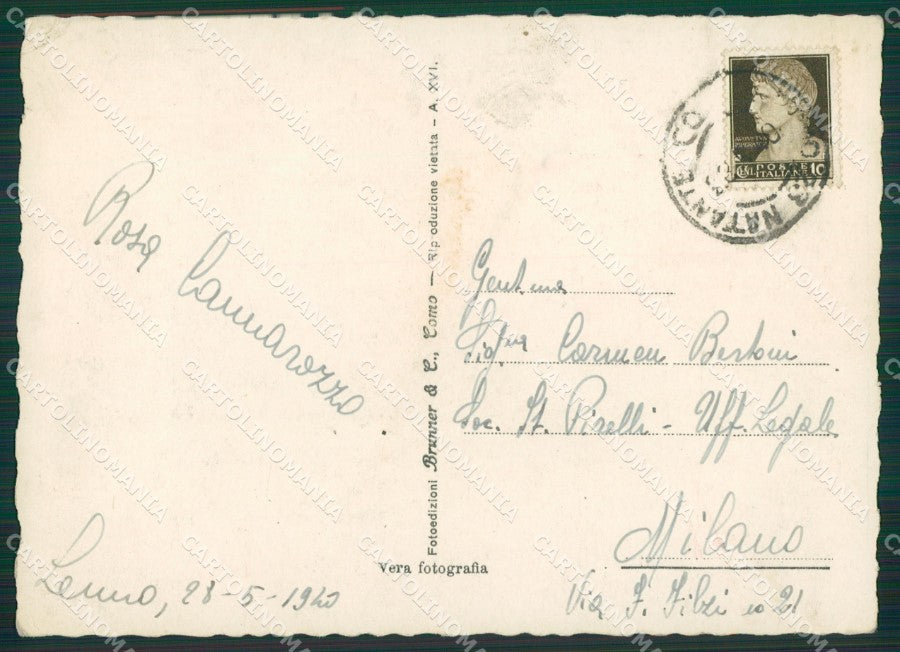 Rosa Cannarozzo
Lenno, 28-5-1940
Fotoedizioni Brunner & C., Como — Riproduzione vietata - A. XVI.
Vera fotografia
POSTE
ITALIANE 10
NATANTE
Gent.ma
Sig.na Carmen Bertoni
Soc. It. Pirelli - Uff. Legale
Milano
Via F. Filzi no 21
CARTOLINOMANIA